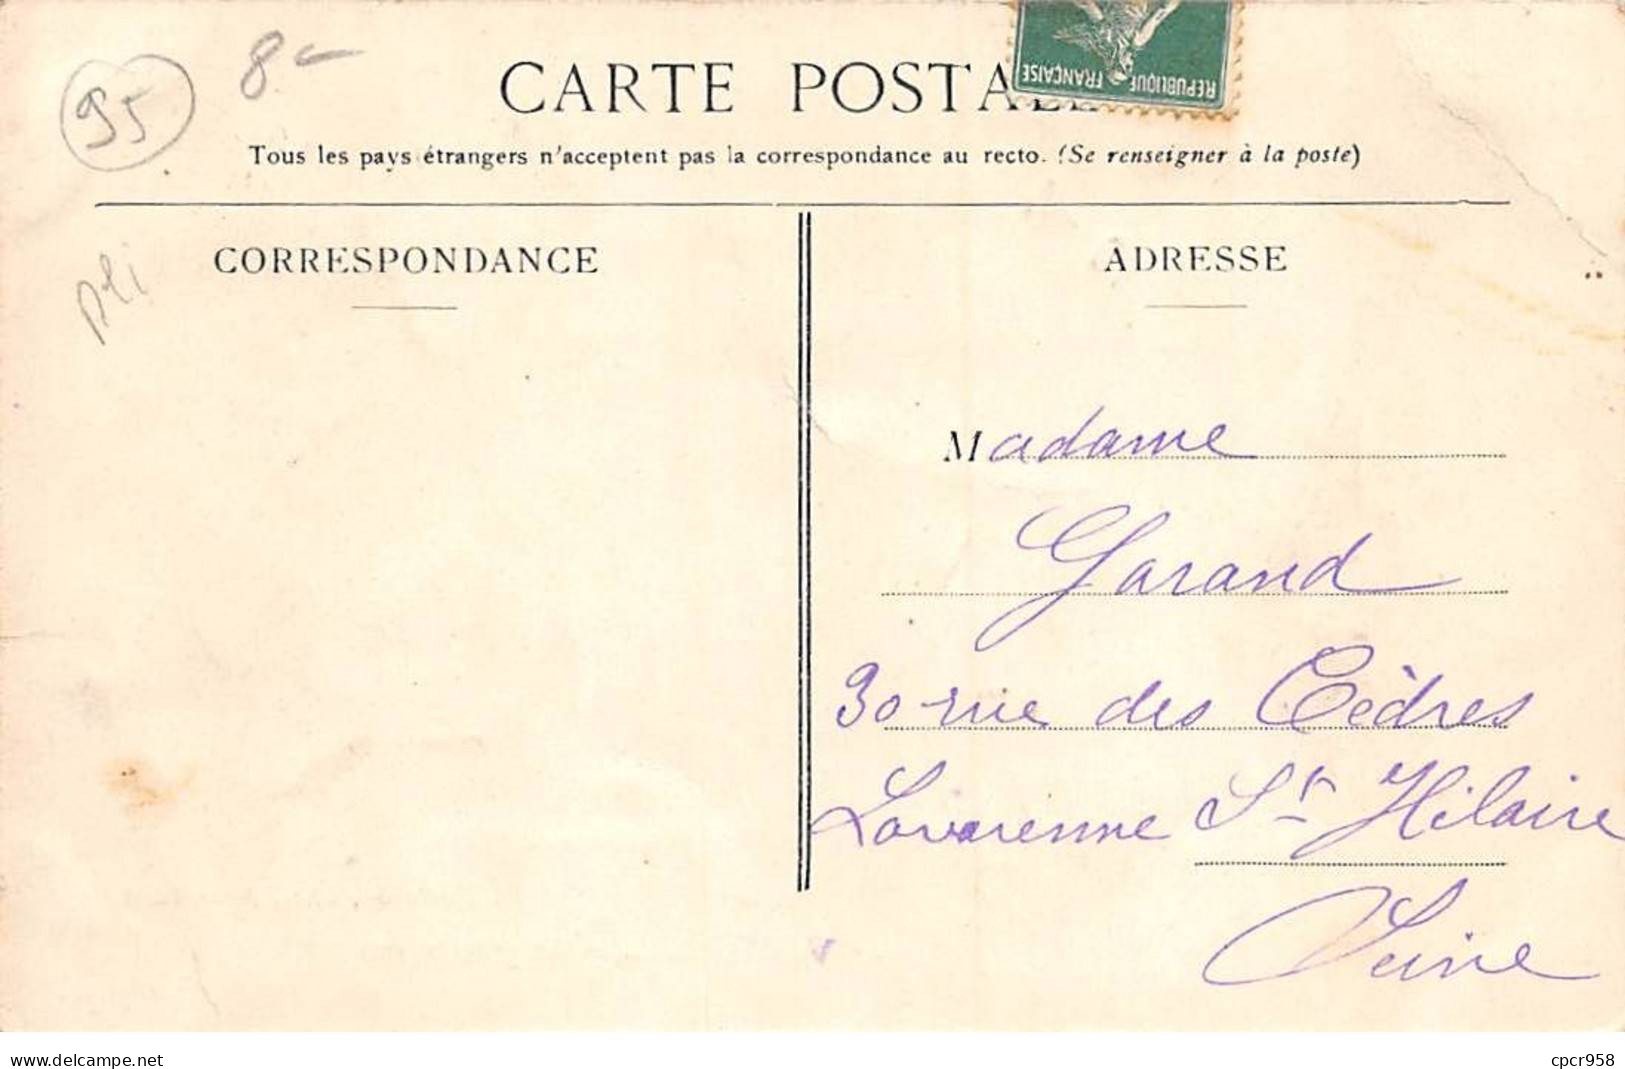 95
8-
CARTE POSTAL
REPUBLIQUE FRANÇAISE
Tous les pays étrangers n'acceptent pas la correspondance au recto. (Se renseigner à la poste)
CORRESPONDANCE
ADRESSE
Pli
Madame
Garand
30 rue des Cèdres
Lavarenne St Hilaire
Seine
www.delcampe.net
cpcr958